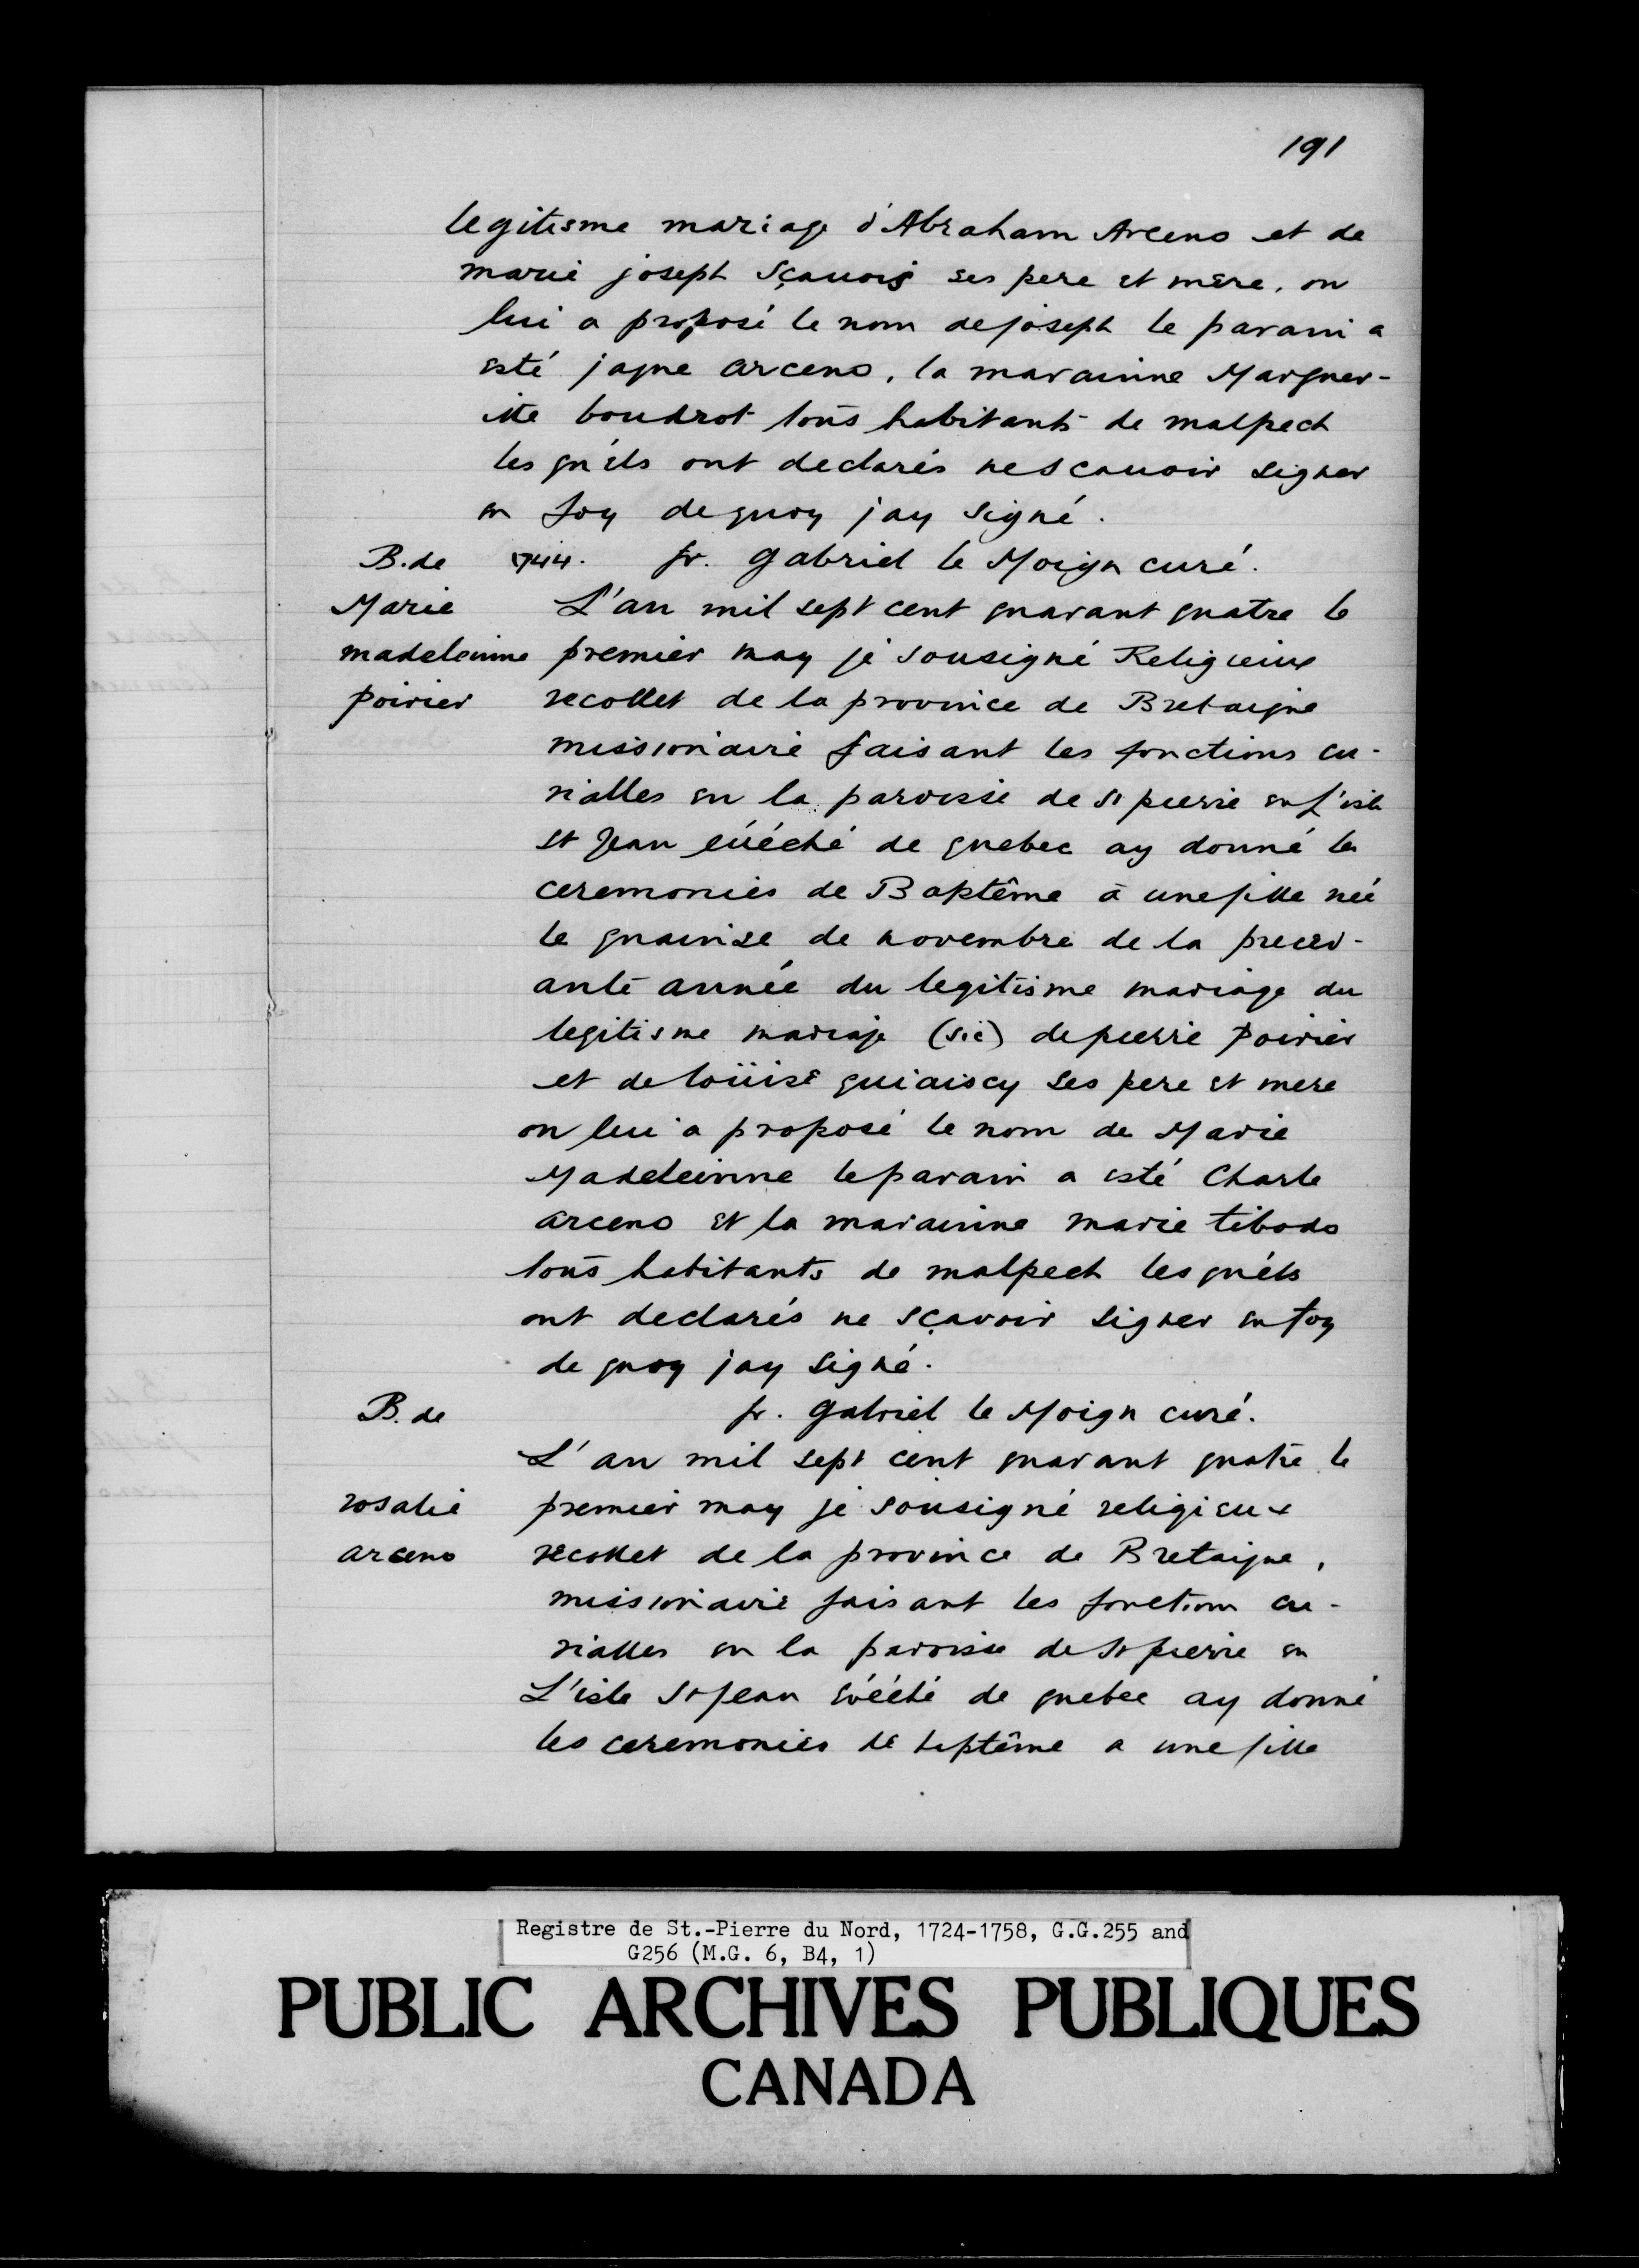 191
legitisme mariage d'Abraham Arceno et de
marie joseph Sçauois ses pere et mère. on
lui a proposé le nom de joseph le parain a
esté jaque arceno, la marainne Marguer-
ite boudrot tous habitants de malpech
les quéls ont declarés ne scauoir signer
en foy de quoy jay signé.
B. de 1744. fr. gabriel le Moign curé.
Marie L'an mil sept cent quarant quatre le
madeleinne premier may je sousigné Religieux
poirier recollet de la province de Bretaigne
missionaire faisant les fonctions cu-
rialles en la paroisse de St pierre en l'isle
St Jean éuéché de quebec ay donné les
ceremonies de Baptême à une fille née
le quainse de novembre de la preced-
ante année du legitisme mariage du
legitisme mariaje (sic) de pierre poirier
et de loüise quiaiscy ses pere et mere
on lui a proposé le nom de Marie
Madeleinne le parain a esté Charle
arceno et la marainne marie tibodo
tous habitants de malpech les quéls
ont declarés ne sçavoir signer en foy
de quoy jay signé.
B. de fr. gabriel le Moign curé.
L'an mil sept cent quarant quatre le
rosalie premier may je sousigné religieux
arceno recollet de la province de Bretaigne,
missionaire faisant les fonctions cu-
rialles en la paroisse de St pierre en
L'isle St Jean évéché de quebec ay donné
les ceremonies de baptême a une fille
Registre de St.-Pierre du Nord, 1724-1758, G.G.255 and
G256 (M.G. 6, B4, 1)
PUBLIC ARCHIVES PUBLIQUES
CANADA